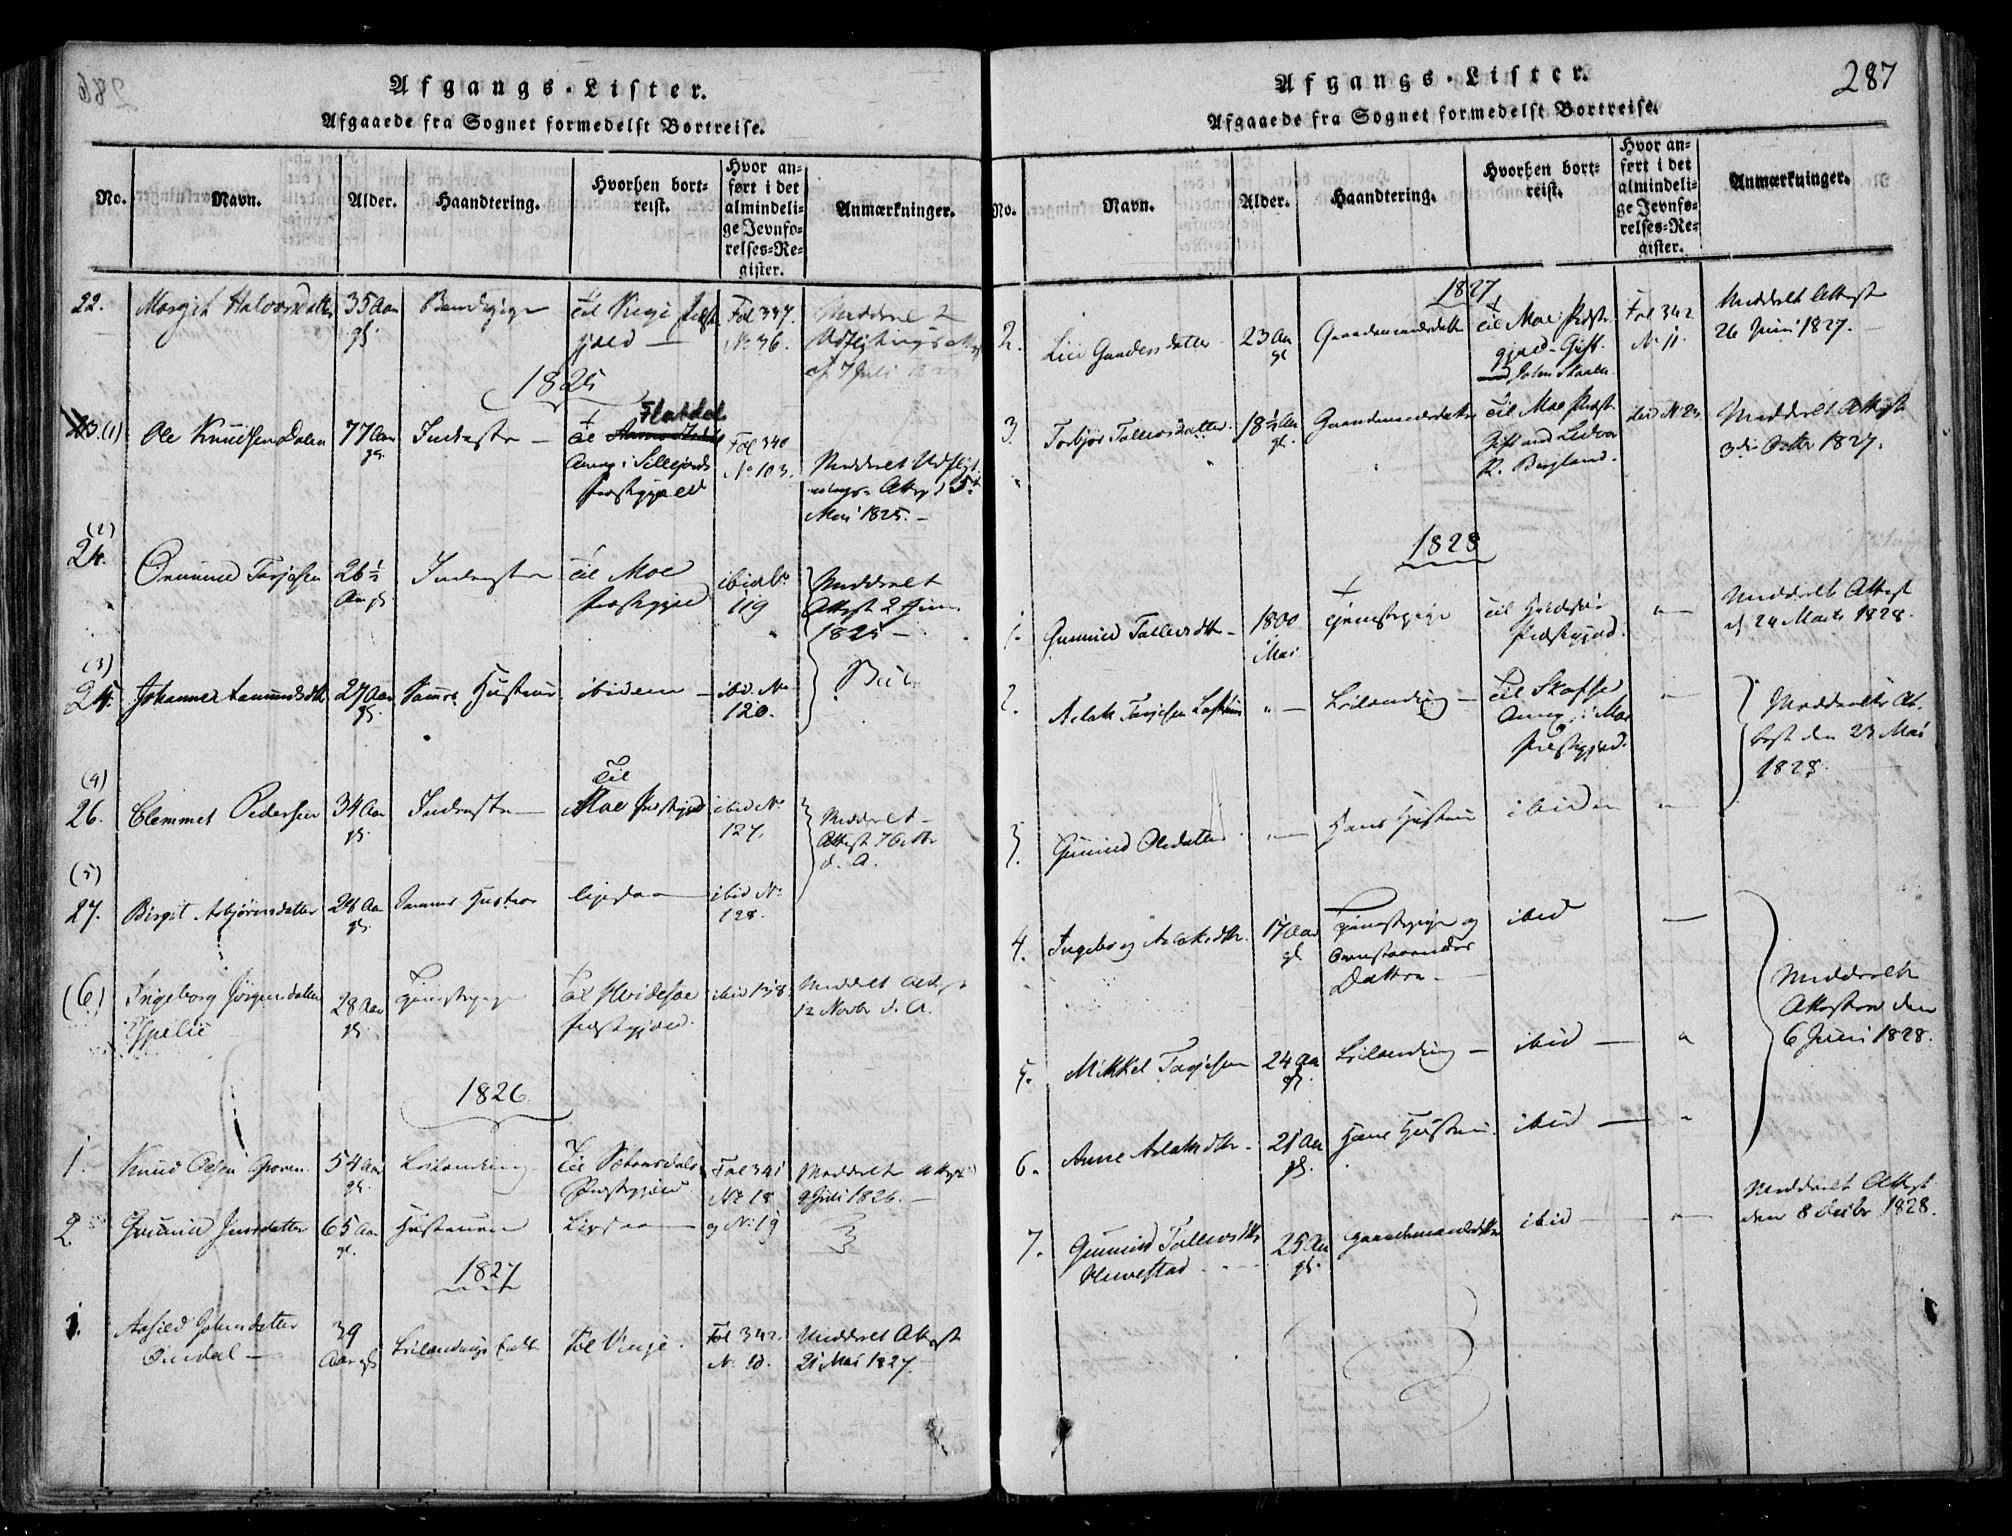 Afgangs-Lister.
Afgaaede fra Sognet formedelst Bortreise.
No.
Navn.
Alder.
Haandtering.
Hvorhen bort-
reist.
Hvor an-
ført i det
almindeli-
ge Jevnfø-
relses-Re-
gister.
Anmærkninger.
22.
Margit Halvorsdatter
35 Aar
gl.
Til
gjeld
Fol 347.
No 36.
Meddeelt
7 Juli
1825
(1)
Ole Knudsen Dalen
77 Aar
gl.
Inderste
Til
Flatdal
Annex i Sillejords
Præstegjeld
Fol 340
No 103.
Meddeelt Udflyt-
nings-Attest 5t
Mai 1825.
(2)
24.
Tarjesen
26 1/2
Aar gl.
Inderste
Til Moe
Præstegjeld
ibid No
119
Meddeelt
Attest 2 Juni
1825
(3)
25.
Johanne Aamundsdtr
27 Aar
gl.
Hustrue
ibidem
ibid. No
120.
(4)
26.
Clemmet Pedersen
34 Aar
gl.
Inderste
Til
Moe Præstegjeld
ibid No
127.
Meddeelt
Attest 7 Octbr
d. A.
(5)
27.
Birgit Asbjørnsdatter
24 Aar
gl.
Sammes Hustroe
ligesaa
ibid No
128.
(6)
Ingeborg Jørgensdatter
Espelie
28 Aar
gl.
Tjenestepige
Til Hvidesøe
Præstegjeld.
ibid 138.
Meddelt Attest
12 Novbr d. A.
1826.
1.
Knud Olsen Groven
54 Aar
gl.
Leilænding
Til Sætersdals
Præstegjeld
Fol 341
No 18
Meddeelt Attest
9 Juli 1826.
2.
Gunild Jensdatter
65 Aar
gl.
Hustruen
Ligesaa
og No 19
1827
1.
Aasild Johnsdatter
39
Aar gl.
Leilændings
Til Vinje.
Fol 342.
No 10.
Meddeelt Attest
21 Mai 1827.
287
Afgangs-Lister.
Afgaaede fra Sognet formedelst Bortreise.
No.
Navn.
Alder.
Haandtering.
Hvorhen bort-
reist.
Hvor an-
ført i det
almindeli-
ge Jevnfø-
relses-Re-
gister.
Anmærkninger.
1827
2.
Liv Gundersdatter
23 Aar
gl.
Gaardmandsdatter
Til Moe Præste-
gjeld. Gift
med John
Fol 342
No 11.
Meddeelt Attest
26 Juni 1827.
3.
Torbjør Tallevsdatter
18 1/2 Aar
gl.
Gaardmandsdatter
Til Moe Præst.
Gift med
ibid No 23
Meddeelt Attest
3die Octbr 1827.
1828
1.
Gunild Tallevsdtr
1800
Mai
Tjenestepige
Til Hvidesøe
Præstegjeld.
Meddeelt Attest
d. 24 Marts 1828.
2.
Aslak Tarjesen
Leilænding
Til Skafse
Annex i Moe
Præstegjeld.
Meddeelte At-
test den 23 Mai
1828.
3.
Gunild Olsdatter
Hans Hustrue
ibidem
4.
Ingeborg Aslaksdtr.
17 Aar
gl.
Tjenestepige og
Ovenstaaendes
Datter
ibid
Meddeelte
Attester den
6 Juni 1828.
5.
Mikkel Tarjesen
24 Aar
gl.
Leilænding
ibid
6.
Anne Aslaksdtr
21 Aar
gl.
Hans Hustrue.
ibid
7.
Gunild Tallevsdtr
Huvestad
25 Aar
gl.
Gaardmandsdtr
ibid
Meddeelt Attest
den 8 Octbr 1828.